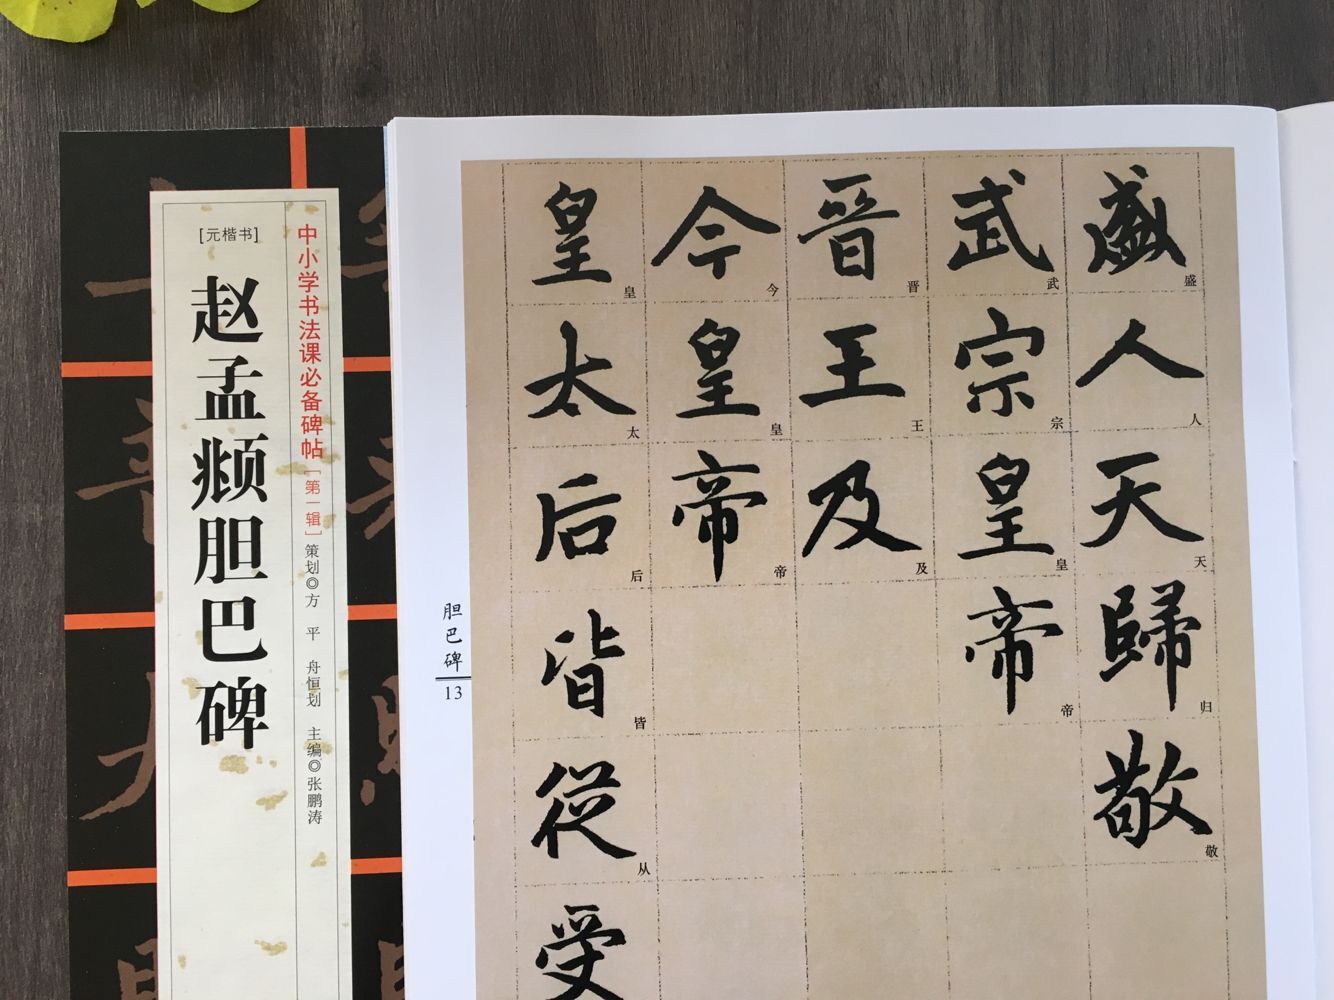 [元楷书]
赵孟頫胆巴碑
中小学书法课必备碑帖[第一辑]
策划◎方 平 舟恒划 主编◎张鹏涛
胆巴碑
13
盛人天歸敬
盛人天归敬
武宗皇帝
武宗皇帝
晋王及
晋王及
今皇帝
今皇帝
皇太后皆從受
皇太后皆从